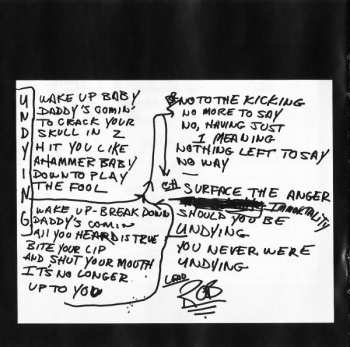 UNDYING
WAKE UP BABY
DADDY'S COMIN'
TO CRACK YOUR
SKULL IN 2
HIT YOU LIKE
A HAMMER BABY
DOWN TO PLAY
THE FOOL
WAKE UP-BREAK DOWN
DADDY'S COMIN
All YOU HEARD IS TRUE
BITE YOUR LIP
AND SHUT YOUR MOUTH
IT'S NO LONGER
UP TO YOU
NO TO THE KICKING
NO MORE TO SAY
NO, HAVING JUST
1 MEANING
NOTHING LEFT TO SAY
NO WAY —
CH SURFACE THE ANGER
IMMORTALITY
SHOULD YOU BE
UNDYING
YOU NEVER WERE
UNDYING
LEAD
ROB